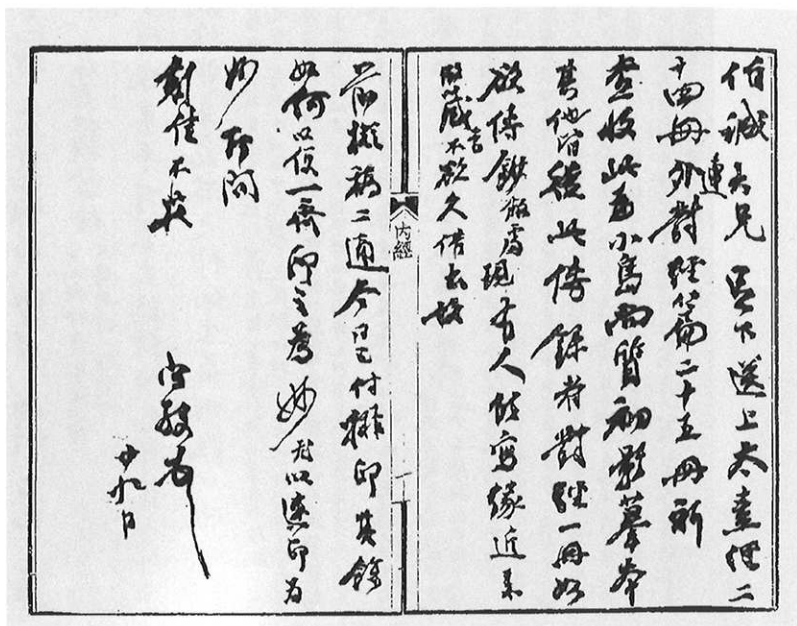 伯誠大兄 足下送上太素經二
十四冊外連對經篇二十五冊所
查收此為小島尚質初影摹本
其他皆從此傳錄者對經一冊如
欲傳鈔亦需現有人能寫緣近來
收藏書不欲久借出故
內經
前擬稿二通今日已付排印其餘
如何以便一齊印之為妙尤以速印為
妙 即問
刻佳不莊
守敬 頓
廿九日